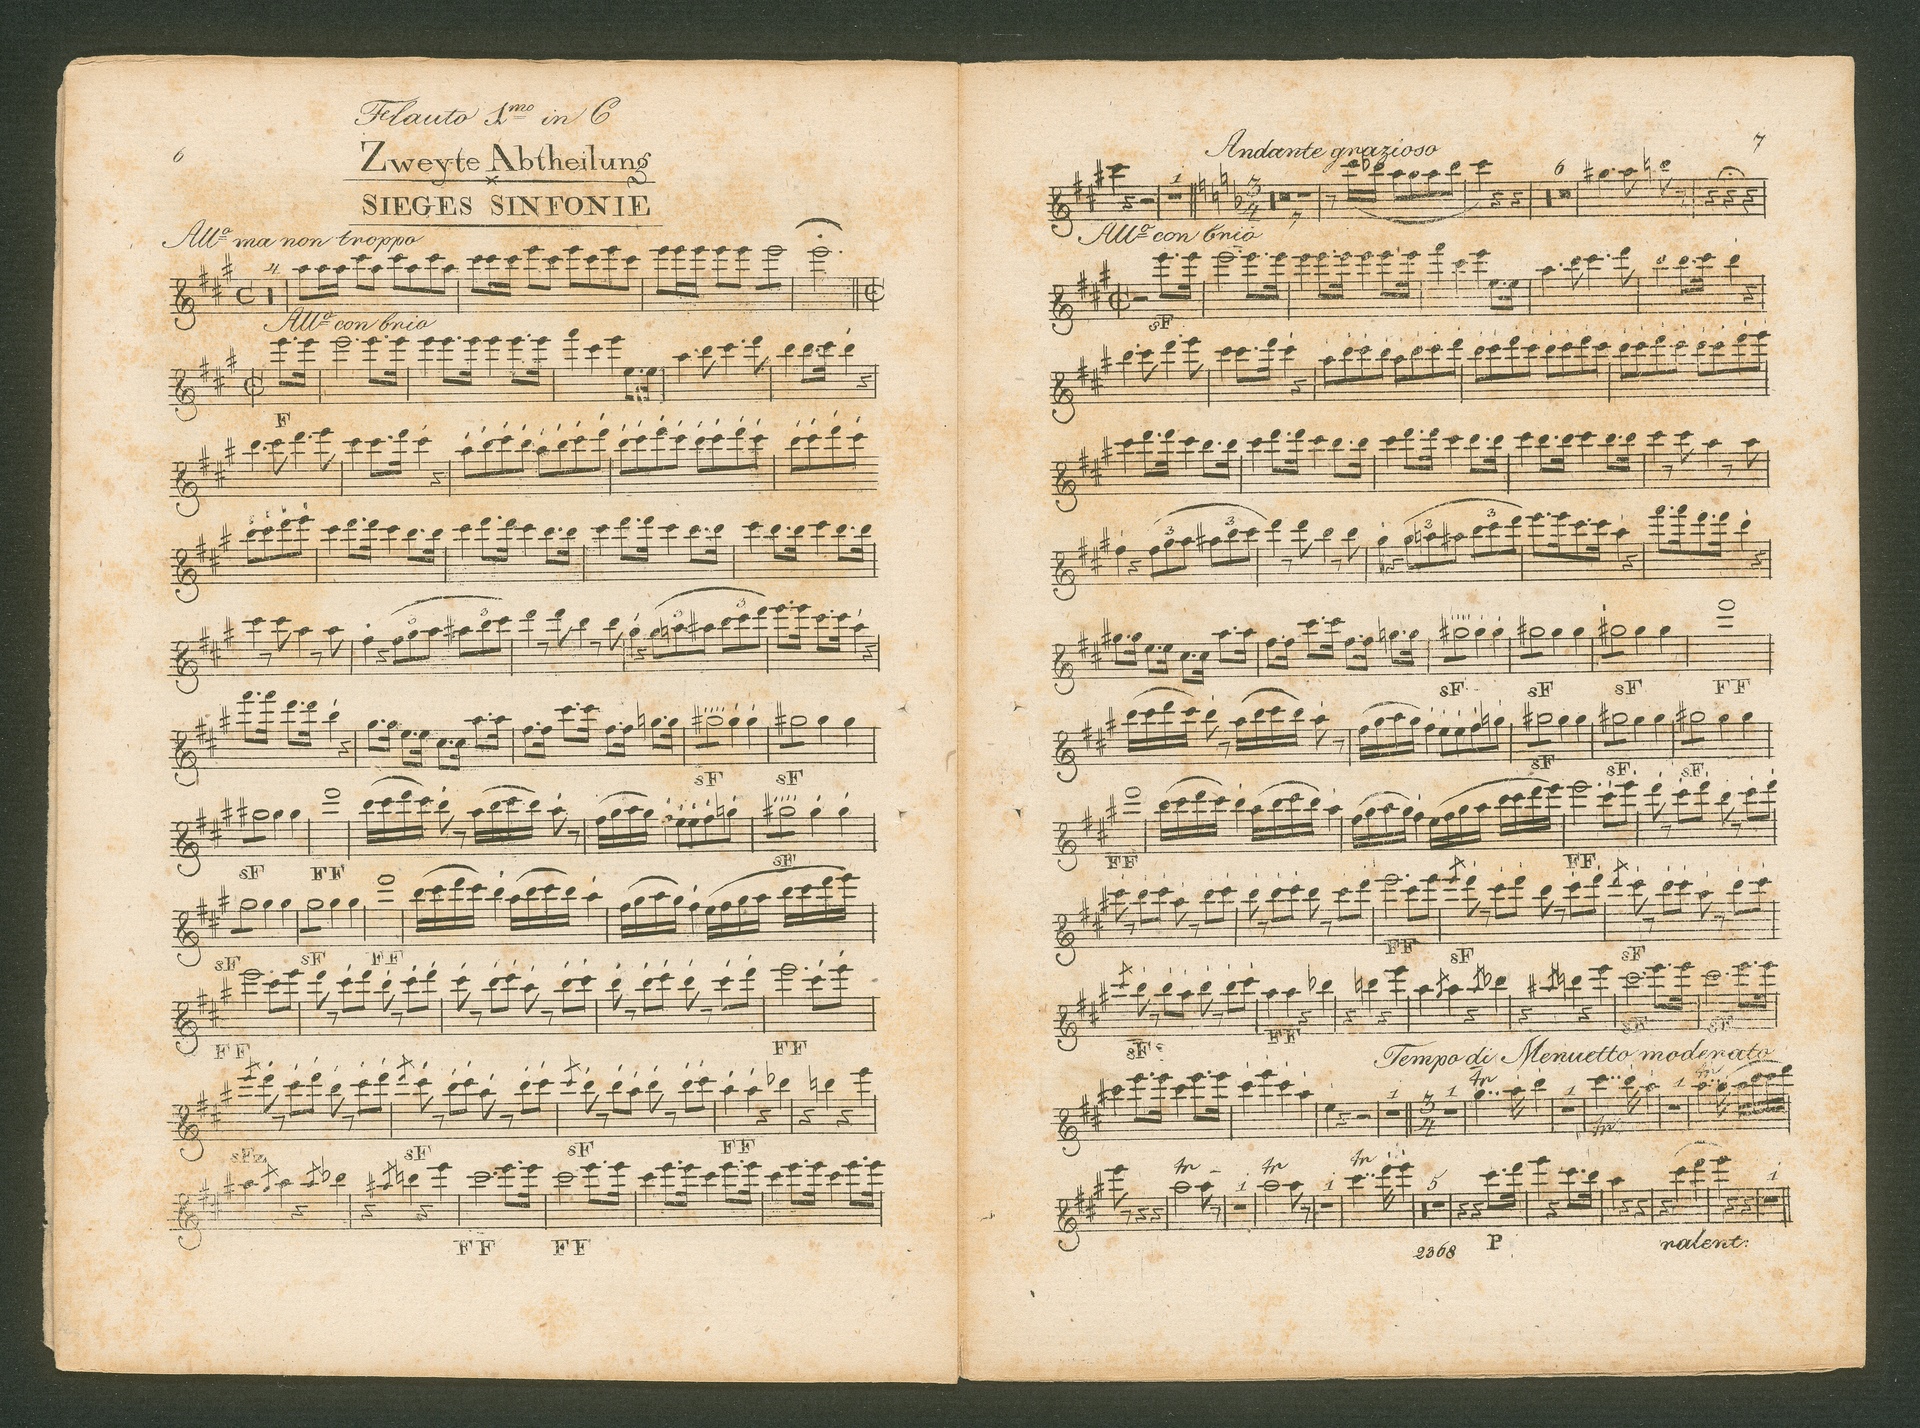 Flauto 1mo in C
6
Zweyte Abtheilung
SIEGES SINFONIE
Allo ma non troppo
4
Allo con brio
F
3 3 3 3
sF sF
sF FF sF
sF sF FF
FF FF
sFz sF sF FF
FF FF
7
Andante grazioso
1 3 4 7 6
Allo con brio
sF
3 3 3 3
sF sF sF FF
sF sF. sF.
FF FF
FF sF sF
sF FF sF sF
Tempo di Menuetto moderato
1 3 4 1 tr 1 tr 1 tr
tr 1 tr 1 tr 5 1
P ralent:
2368